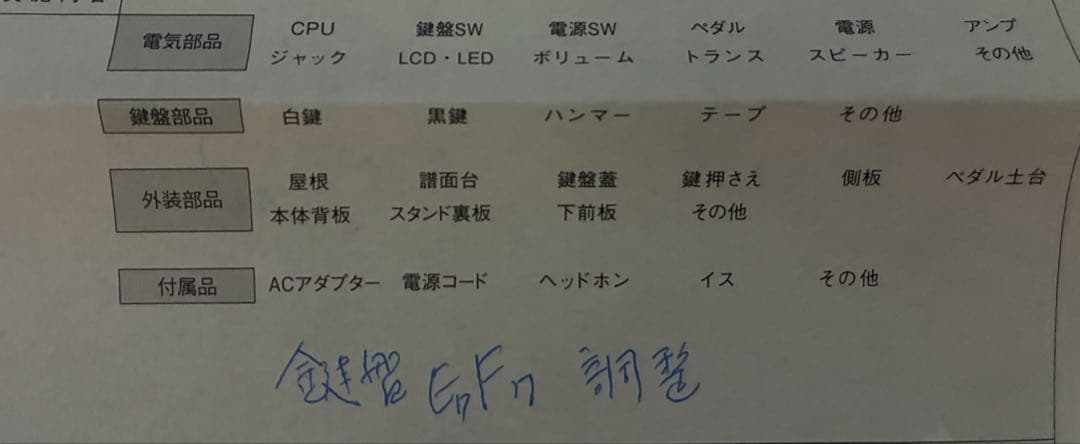 電気部品 CPU 鍵盤SW 電源SW ペダル 電源 アンプ
ジャック LCD・LED ボリューム トランス スピーカー その他
鍵盤部品 白鍵 黒鍵 ハンマー テープ その他
外装部品 屋根 譜面台 鍵盤蓋 鍵押さえ 側板 ペダル土台
本体背板 スタンド裏板 下前板 その他
付属品 ACアダプター 電源コード ヘッドホン イス その他
鍵盤 調整